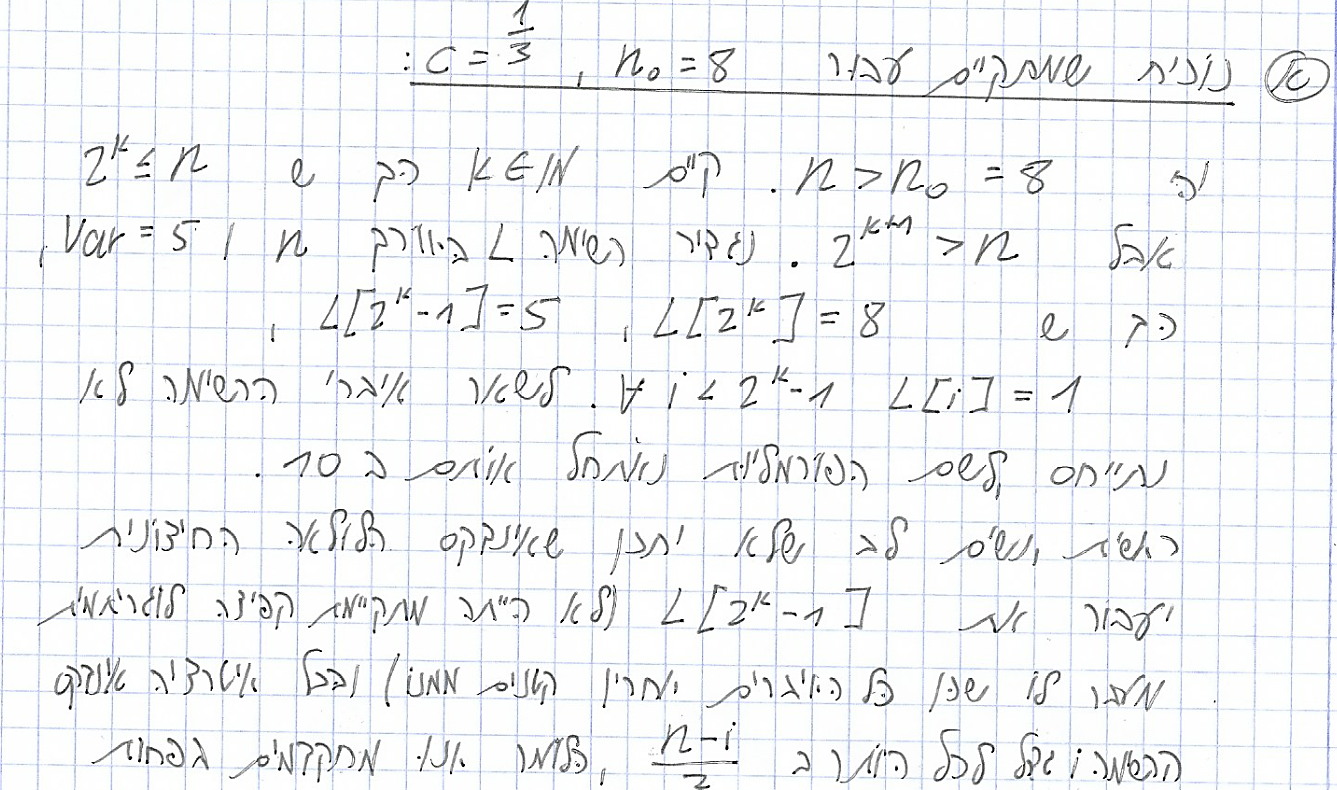 א) נוכיח שמתקיים עבור n₀ = 8, c = 1/3:
יהי n > n₀ = 8. קיים k ∈ ℕ כך ש 2^k ≤ n
אבל 2^(k+1) > n. נגדיר רשימה L באורך n ו var = 5,
כך ש L[2^k] = 8, L[2^k-1] = 5,
∀ i < 2^k-1 L[i] = 1. לשאר איברי הרשימה לא
נתייחס, לשם הפורמליות נאתחל אותם ב 10.
ראשית, נשים לב שלא יתכן שאינדקס הלולאה החיצונית
יעבור את L[2^k-1] (לא הייתה מתקיימת קפיצה לוגריתמית
מעבר לו שכן כל האיברים קטנים ממנו) ובכל איטרציה אינדקס
הרשימה i גדל לכל היותר ב (n-i)/2, כלומר אנו מתקדמים בפחות